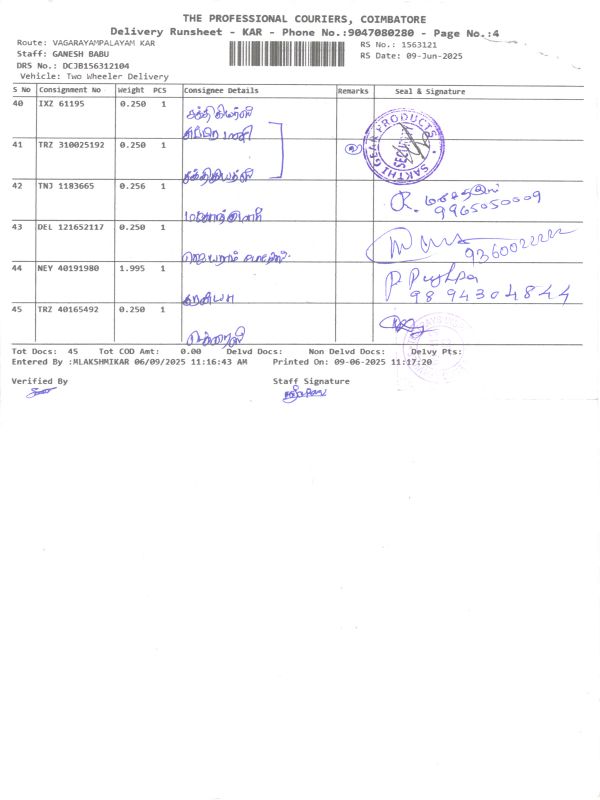 THE PROFESSIONAL COURIERS, COIMBATORE
Delivery Runsheet - KAR - Phone No.:9047080280 - Page No.:4
Route: VAGARAYAMPALAYAM KAR RS No.: 1563121
Staff: GANESH BABU RS Date: 09-Jun-2025
DRS No.: DCJB156312104
Vehicle: Two Wheeler Delivery
S No Consignment No Weight PCS Consignee Details Remarks Seal & Signature
40 IXZ 61195 0.250 1
SAKTHI GEAR PRODUCTS
SECURITY
41 TRZ 310025192 0.250 1
42 TNJ 1183665 0.256 1
R.
9965050009
43 DEL 121652117 0.250 1
9360022222
44 NEY 40191980 1.995 1
P Pushpa
9894304844
45 TRZ 40165492 0.250 1
Tot Docs: 45 Tot COD Amt: 0.00 Delvd Docs: Non Delvd Docs: Delvy Pts:
Entered By :MLAKSHMIKAR 06/09/2025 11:16:43 AM Printed On: 09-06-2025 11:17:20
Verified By Staff Signature